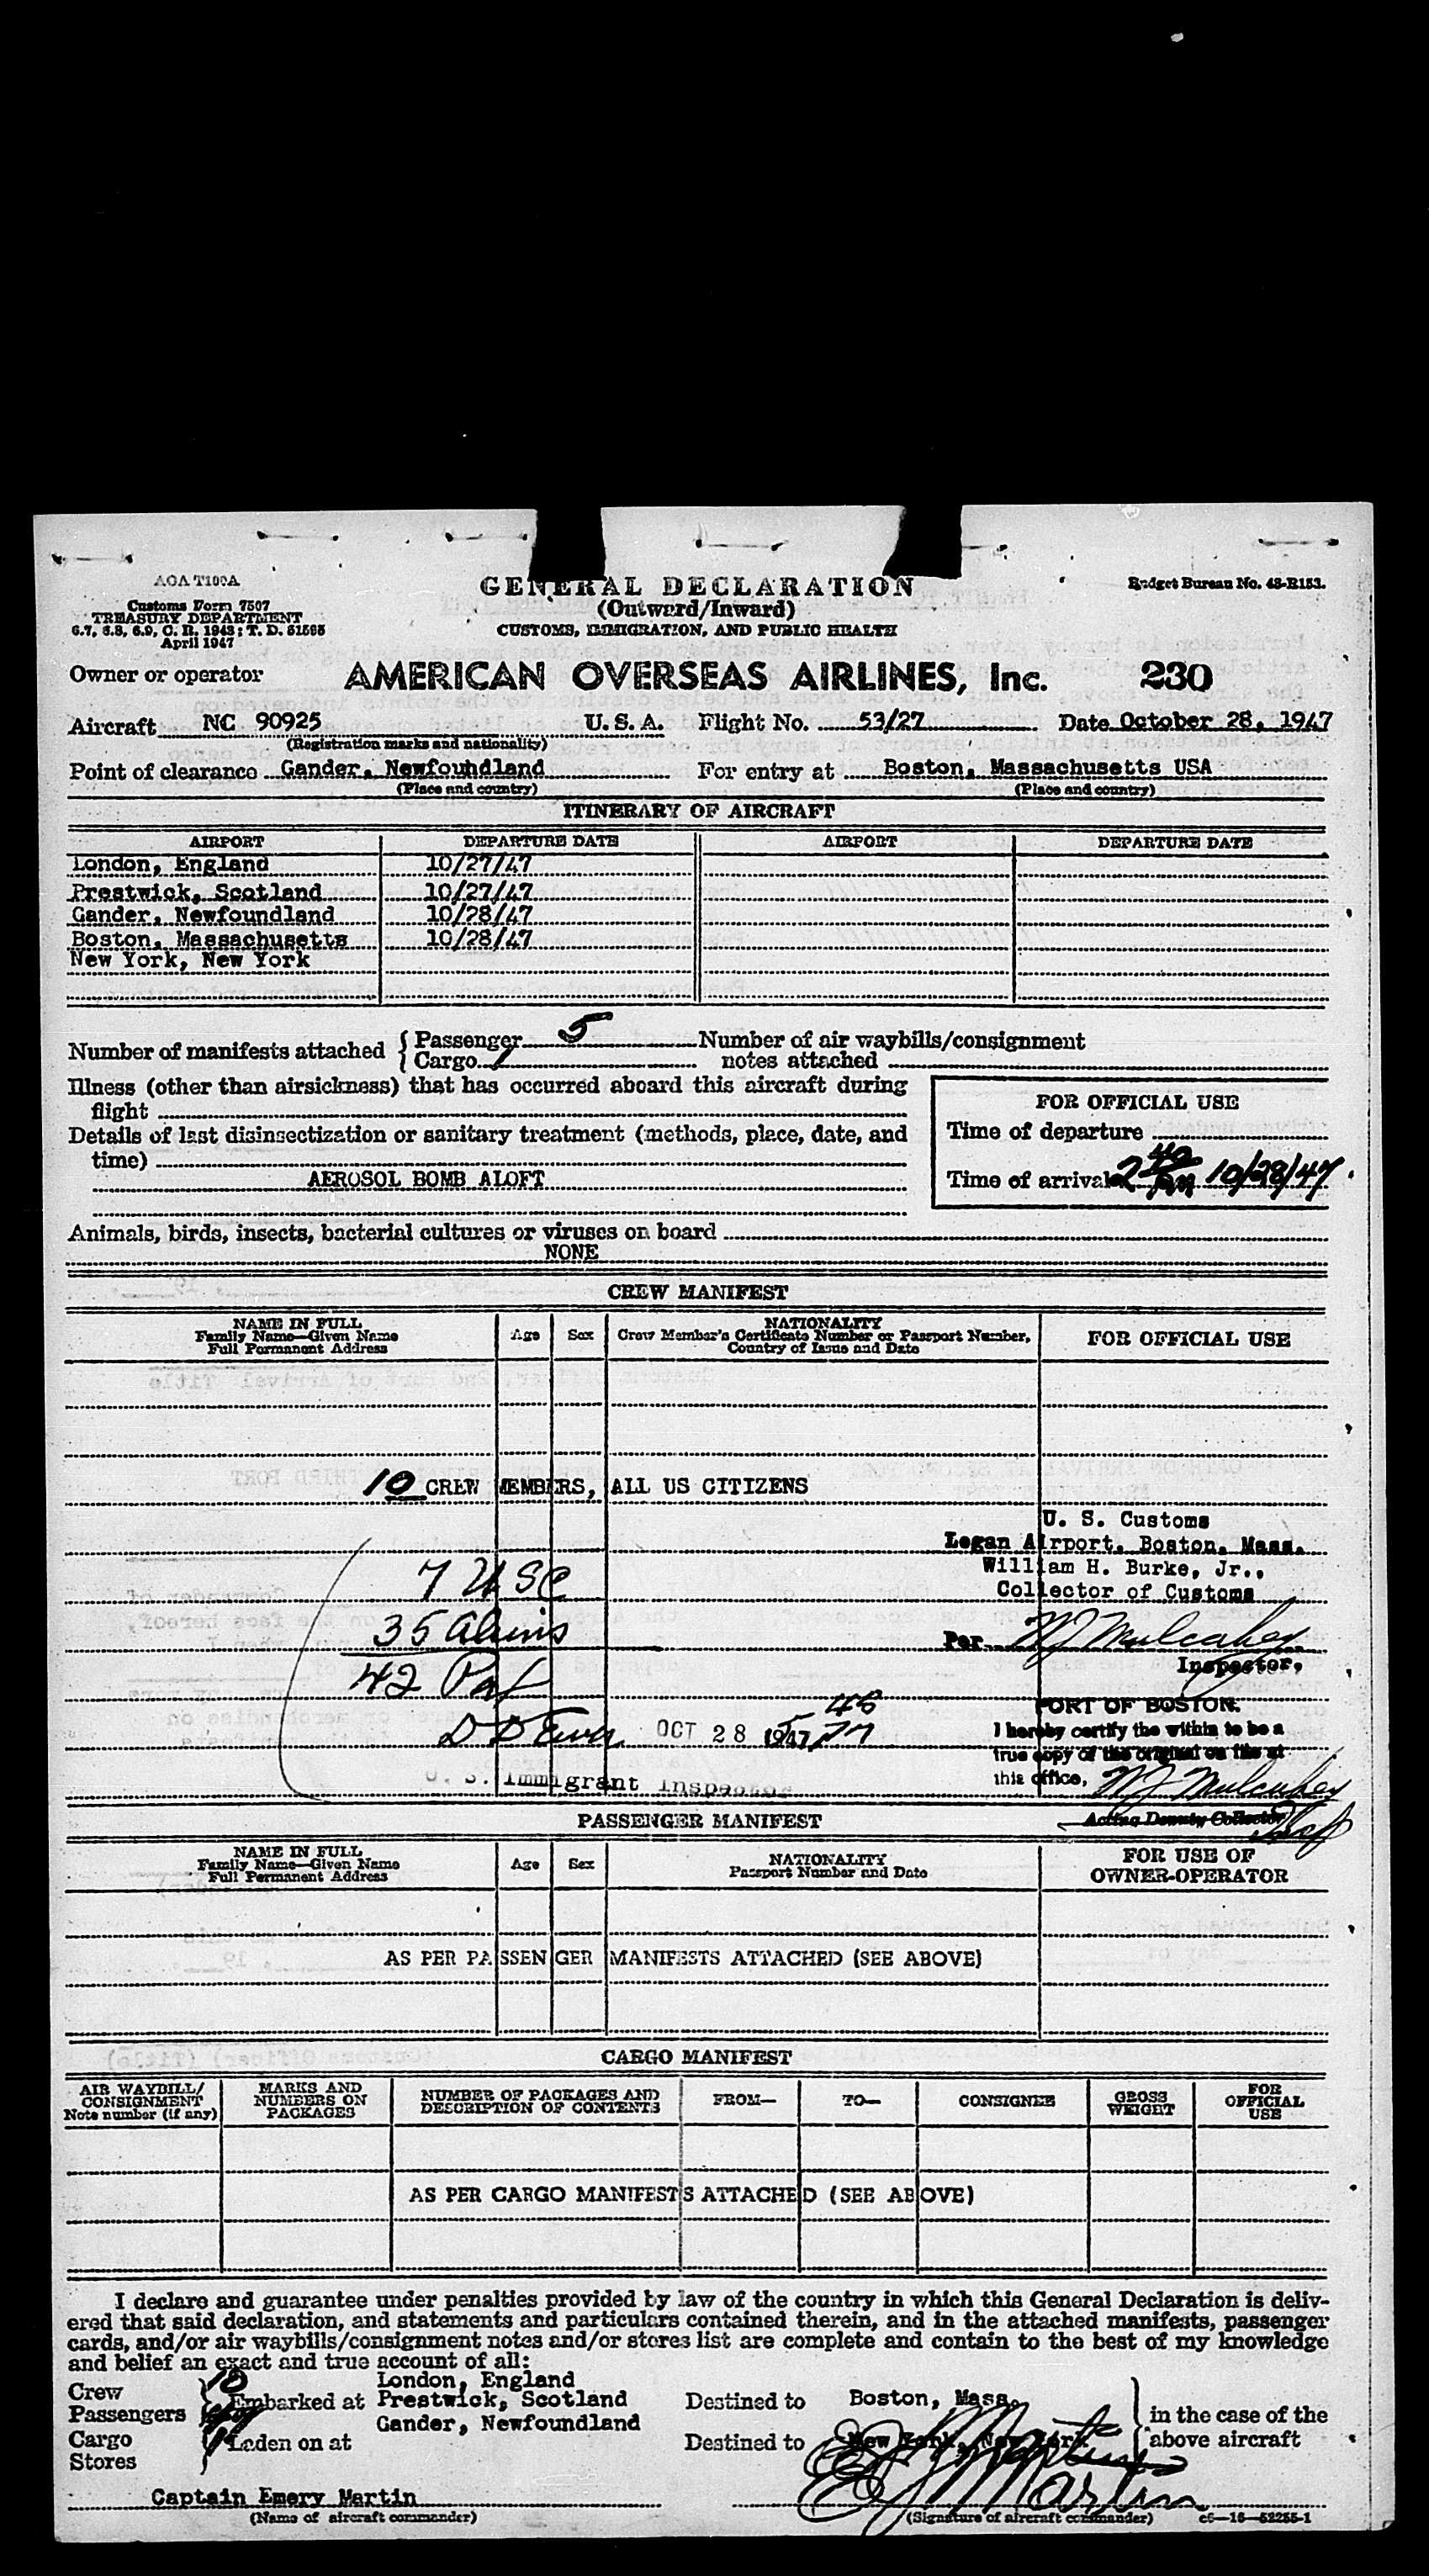 AOA T100A
Customs Form 7507
TREASURY DEPARTMENT
6.7, 6.8, 6.9, C. R. 1943; T. D. 51595
April 1947
GENERAL DECLARATION
(Outward/Inward)
CUSTOMS, IMMIGRATION, AND PUBLIC HEALTH
Budget Bureau No. 48-R153.
Owner or operator AMERICAN OVERSEAS AIRLINES, Inc. 230
Aircraft NC 90925 U. S. A. Flight No. 53/27 Date October 28, 1947
(Registration marks and nationality)
Point of clearance Gander, Newfoundland For entry at Boston, Massachusetts USA
(Place and country) (Place and country)
ITINERARY OF AIRCRAFT
AIRPORT DEPARTURE DATE AIRPORT DEPARTURE DATE
London, England 10/27/47
Prestwick, Scotland 10/27/47
Gander, Newfoundland 10/28/47
Boston, Massachusetts 10/28/47
New York, New York
Number of manifests attached { Passenger 5 Number of air waybills/consignment
Cargo 1 notes attached
Illness (other than airsickness) that has occurred aboard this aircraft during
flight
FOR OFFICIAL USE
Details of last disinsectization or sanitary treatment (methods, place, date, and
time)
Time of departure
AEROSOL BOMB ALOFT
Time of arrival 2 40 PM 10/28/47
Animals, birds, insects, bacterial cultures or viruses on board
NONE
CREW MANIFEST
NAME IN FULL
Family Name—Given Name
Full Permanent Address
Age Sex
NATIONALITY
Crew Member's Certificate Number or Passport Number,
Country of Issue and Date
FOR OFFICIAL USE
10 CREW MEMBERS, ALL US CITIZENS
U. S. Customs
Logan Airport, Boston, Mass.
William H. Burke, Jr.,
Collector of Customs
7 USC
35 Aliens
42 Pas
Per WJ Mulcahey
Inspector,
PORT OF BOSTON.
I hereby certify the within to be a
true copy of the original on file at
this office, WJ Mulcahey
Acting Deputy Collector
OCT 28 1947
U. S. Immigrant Inspector
PASSENGER MANIFEST
NAME IN FULL
Family Name—Given Name
Full Permanent Address
Age Sex
NATIONALITY
Passport Number and Date
FOR USE OF
OWNER-OPERATOR
AS PER PASSENGER MANIFESTS ATTACHED (SEE ABOVE)
CARGO MANIFEST
AIR WAYBILL/
CONSIGNMENT
Note number (if any)
MARKS AND
NUMBERS ON
PACKAGES
NUMBER OF PACKAGES AND
DESCRIPTION OF CONTENTS
FROM—
TO—
CONSIGNEE
GROSS
WEIGHT
FOR
OFFICIAL
USE
AS PER CARGO MANIFESTS ATTACHED (SEE ABOVE)
I declare and guarantee under penalties provided by law of the country in which this General Declaration is deliv-
ered that said declaration, and statements and particulars contained therein, and in the attached manifests, passenger
cards, and/or air waybills/consignment notes and/or stores list are complete and contain to the best of my knowledge
and belief an exact and true account of all:
Crew 10
Passengers
Cargo
Stores
Embarked at
Laden on at
London, England
Prestwick, Scotland
Gander, Newfoundland
Destined to Boston, Mass.
Destined to New York, New York
in the case of the
above aircraft
Captain Emery Martin
EJ Martin
EJ Martin
(Name of aircraft commander)
(Signature of aircraft commander)
c6—16—52255-1